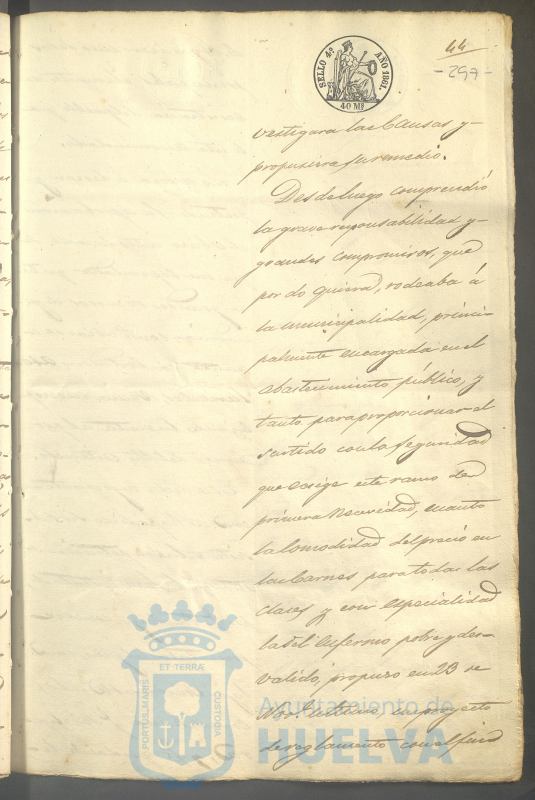 SELLO 4º AÑO 1861.
40 Ms
44
- 297 -
vestigara las Causas y
propusiera su remedio.
Desde luego comprendió
la grave responsabilidad y
grandes compromisos, que
por do quiera, rodeaba á
la municipalidad, princi
palmente encargada en el
abastecimiento público, y
tanto para proporcionar el
surtido con la seguridad
que exige este ramo de
primera necesidad, cuanto
la comodidad del precio en
las Carnes para todas las
clases y con especialidad
la del enfermo pobre y des-
valido, propuso en 23 de
último, un proyecto
de reglamento con el fin
PORTUS MARIS
ET TERRÆ
CUSTODIA
Ayuntamiento de
HUELVA